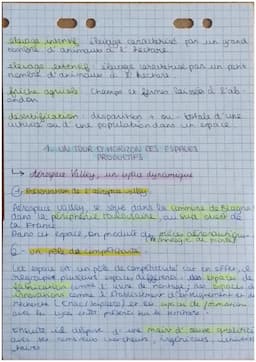 élevage intensif : élevage caractérisé par un grand
nombre d'animaux à l'hectare.
élevage extensif : élevage caractérisé par un petit
nombre d'animaux à l'hectare.
friche agricole : champs et fermes laissés à l'ab
andon
désertification : disparition + ou - totale d'une
ou d'une population dans un espace.
1. UN TOUR D'HORIZON DES ESPACES
PRODUCTIFS
↳ Aerospace Valley, un espace dynamique
① Présentation de l'aerospace valley.
Aerospace Valley, se situe dans la commune de Blagnac
dans la périphérie toulousaine, au sud ouest de
la France.
Dans cet espace, on produit des pièces aéronautiques
② - un pôle de compétitivité
Cet espace est un pôle de compétitivité car en effet, il
regroupe plusieurs espaces différents : des espaces de
fabrication comme l'usine de montage, des espaces d'
innovations comme l'établissement d'enseignement et de
recherche et un espace de formation
avec le lycée situé sur le territoire.
Ensuite elle dispose d'une main d'œuvre qualifiée
avec ses nombreux chercheurs, ingénieurs,